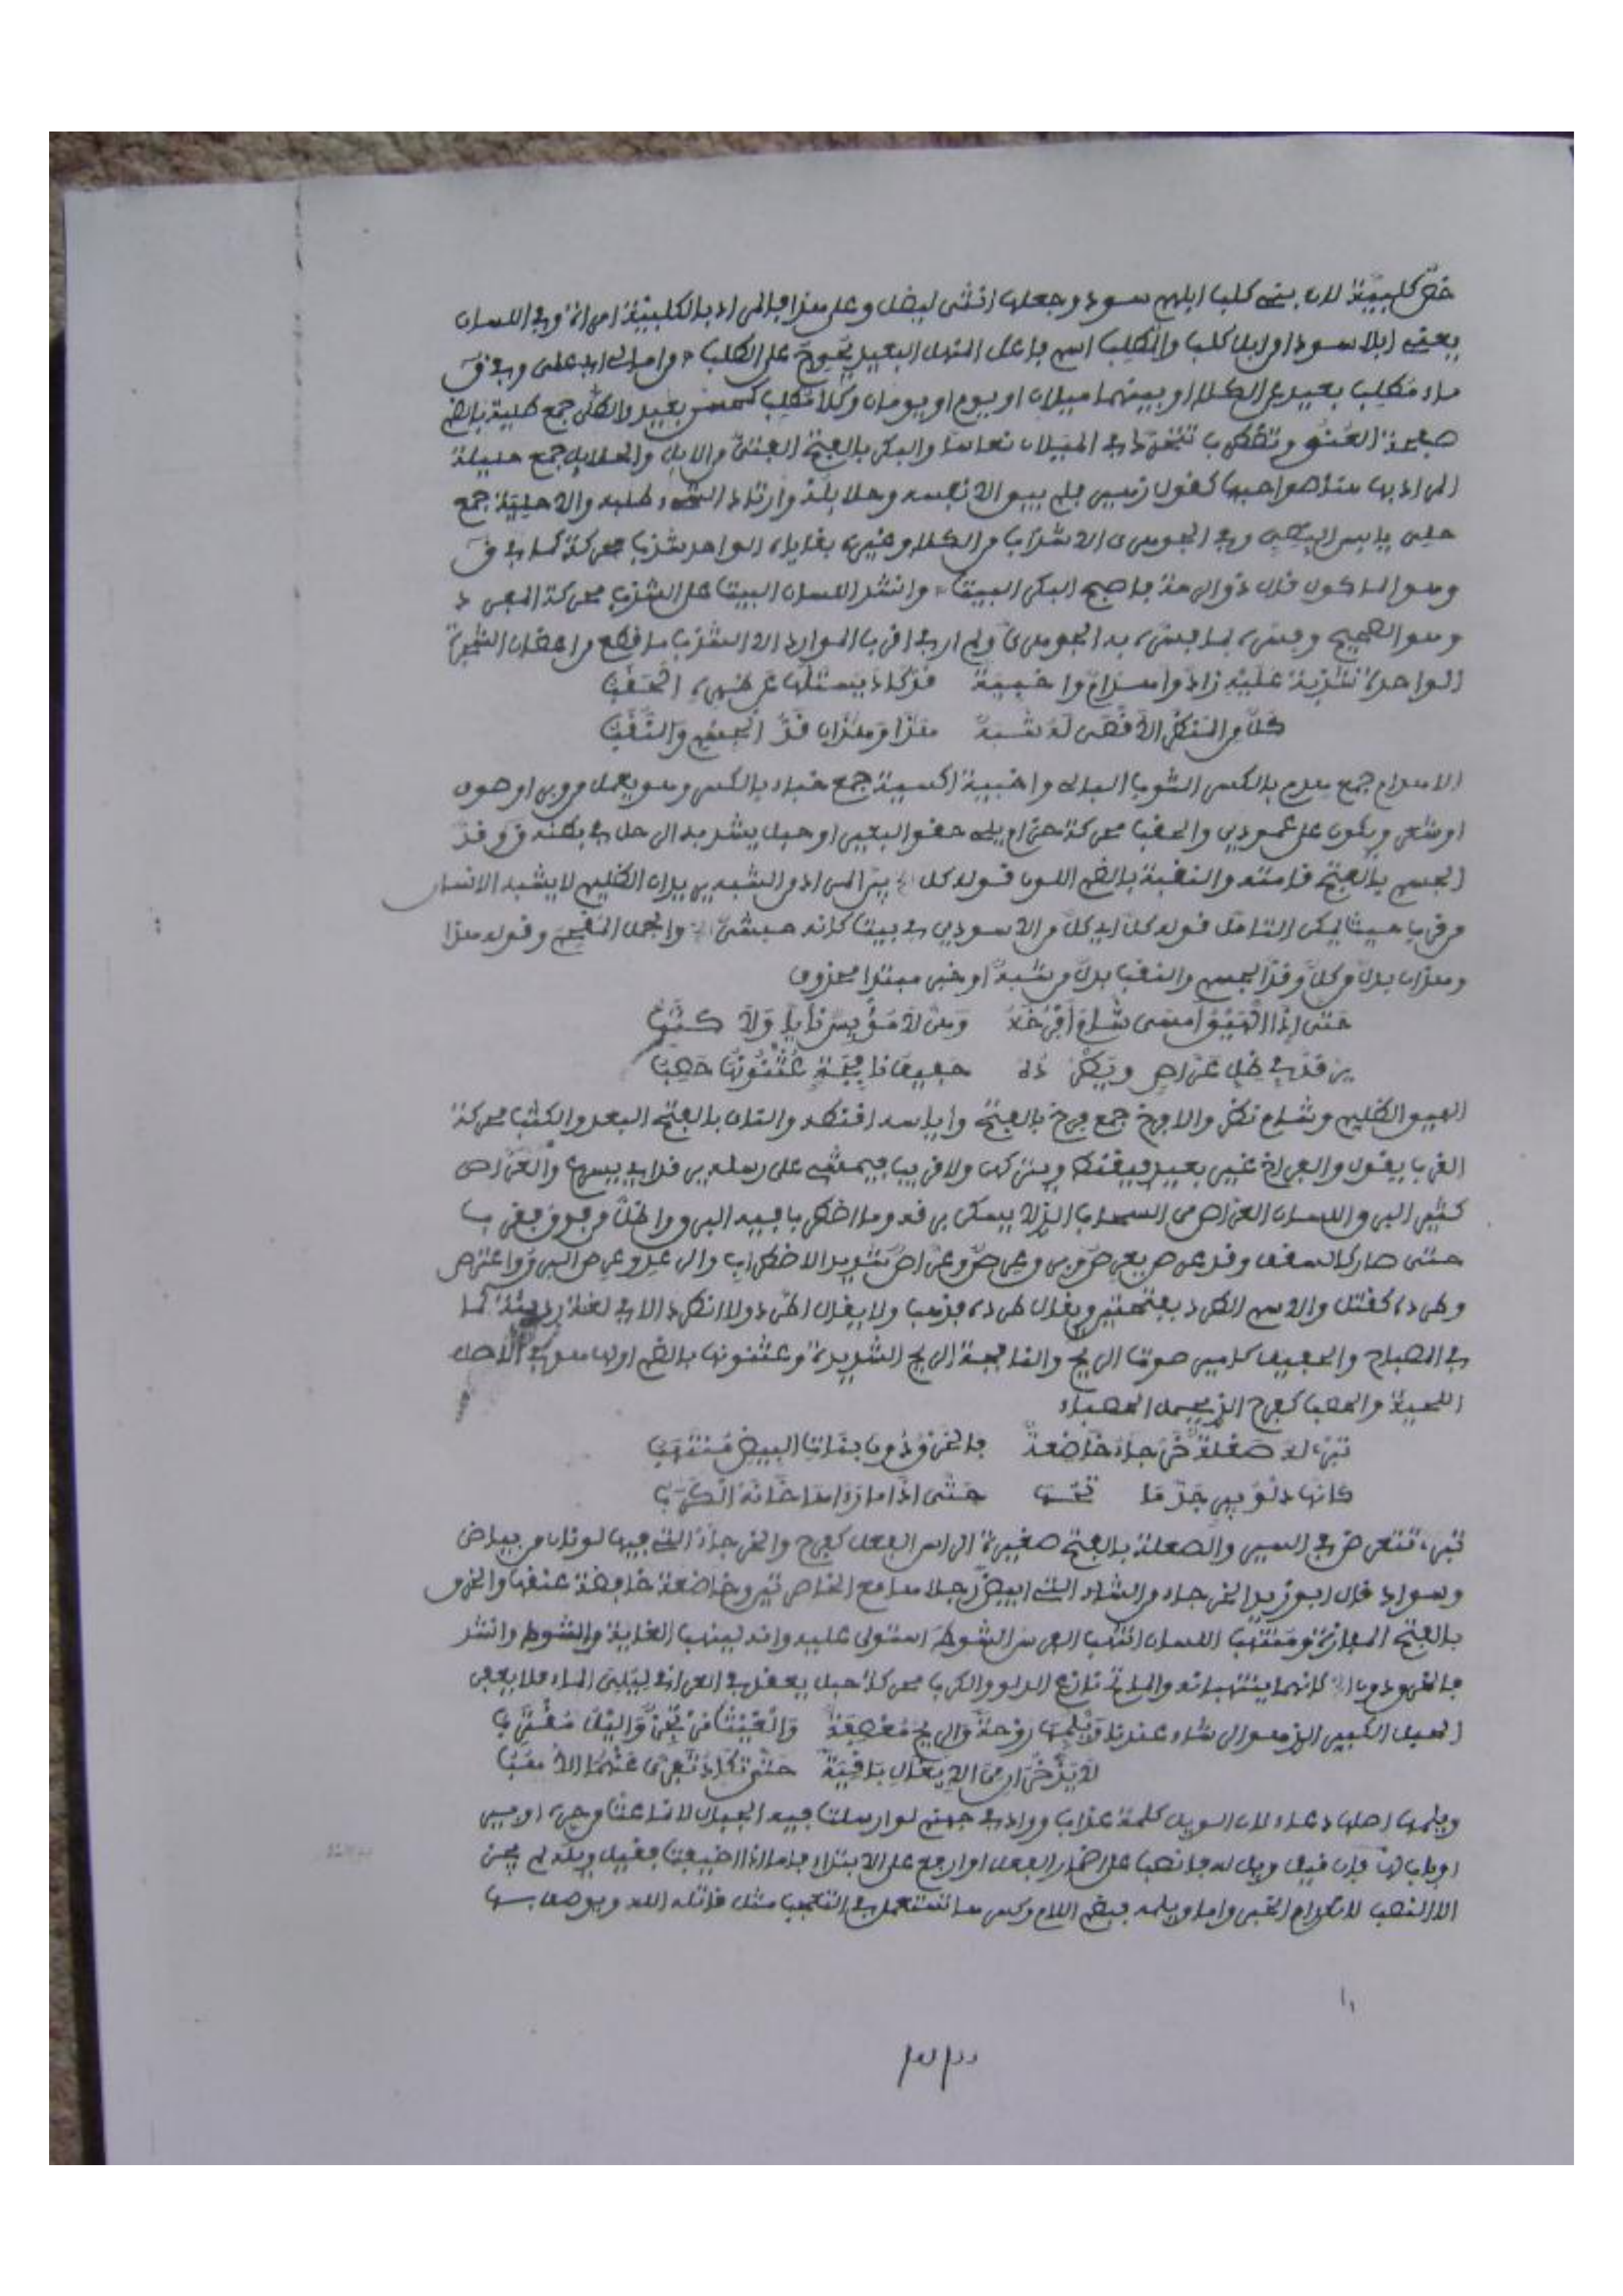 خص كلبية لان بني كلب ابلهم سود وجعلها انثى ليضل وعلى هذا فالمراد بالكلبية امراة وفي اللسان
يعني ابلا سودا وابل كلب والمطلب اسم فاعل المنهل البعيد يحوج على الطلب وامال اي اعلى وفي ق
ماء مطلب بعيد عن الكلإ او بينهما ميلان او يوم او يومان وكلأ مطلب كمحسن بعيد والطلى جمع طلية بالضم
صفحة العنق وتضطرب تتحرك في الميلان نعاسا والبكر بالفتح الفتي من الابل والحلايل جمع حليلة
المراد بها هنا صواحبها كقول زهير فلم يبق الا نفسه وحلايله وارتاد الشيء طلبه والاحلية جمع
حلي يابس النصي وفي الجوهري الاشذاب من الكلإ وغيره بقاياه الواحد شذب محركة كما في ق
وهو الماكول قال ذو الرمة فاصبح البكر البيت وانشد اللسان البيت على الشذب محركة
وهو الصحيح وفسره بما فسره به الجوهري ولم ار في اقرب الموارد الا الشذب ما قطع من اغصان الشجرة
الواحدة شذبة عليه زاد واهدام واخبية قد كاد يستلها عن ظهره الحقب
كل من المنظر الاقصى له شبه هذا وهذان قد الجسم والنقب
الاهدام جمع هدم بالكسر الثوب البالي واخبية اكسية جمع خباء بالكسر وهو يعمل من وبر او صوف
او شعر ويكون على عمودين والحقب محركة حزام يلي حقو البعير او حبل يشد به الرحل في بطنه ق وقد
الجسم بالفتح قامته والنقبة بالضم اللون قوله كل الخ يبر المراد من الشبه بهن بان الظليم لا يشبه الانسان
من قرب حيث يمكن التامل قوله كل اي كل من الاسودين في بيت كانه حبشي الخ والجمل المقحم وقوله هذا
وهذان بدل من كل وقد الجسم والنقب بدل من شبه او خبر مبتدا محذوف
حتى اذا الهيق امسى شام افرخه وهن لا مؤيس نايا ولا كثب
يرقد في ظل عراص ويطرده حفيف نافجة عثنونها حصب
الهيق الظليم وشام نظر والافرخ جمع فرخ بالفتح وايأسه اقنطه والناي بالفتح البعد والكثب محركة
القرب يقول والفراخ غير بعيد فيقنط ويتركها ولا قريب فيمشي على رسله يرقد اي يسرع والعراص
كثير البرق واللسان العراص من السحاب الذي لا يسكن برقه وما اضطرب فيه البرق واظل من فوق فقرب
حتى صار كالسقف وقد عرص يعرص وبرق عرص وعراص شديد الاضطراب والرعد وعرص البرق واعترص
وطرده كقتل والاسم الطرد بفتحتين ويقال طرده فذهب ولا يقال اطرد ولا انطرد الا في لغة رديئة كما
في المصباح والحفيف كامير صوت الريح والنافجة الريح الشديدة وعثنونها بالضم اولها وهو في الاصل
اللحية والحصب كفرح الذي يحمل الحصباء
تبري له صعلة خرجاء خاضعة فالخرق دون بنات البيض منتهب
كانها دلو بير جد ماتحها حتى اذا ما رآها خانه الكرب
تبري تتعرض في السير والصعلة بالفتح صغيرة الراس الفعل كفرح والخرجاء التي فيها لونان من بياض
وسواد قال ابو زيد الخرجاء من الشاء التي ابيض رجلاها مع الخاصرتين وخاضعة خافضة عنقها والخرق
بالفتح المفازة ومنتهب اللسان انتهب الفرس الشوط استولى عليه وانه لينهب الغاية والشوط وانشد
فالخرق دون الخ كانهما ينتهبانه والماتح نازع الدلو والكرب محركة حبل يعقل في العراقي ليلي الماء فلا يعفن
الحبل الكبير الذي هو الرشاء عندنا ويلمها روحة والريح معصفة والغيث مرتجز والليل مقترب
لا يذخران من الايغال باقية حتى تكاد تفرى عنهما الاهب
ويلمها اصلها دعاء لان الويل كلمة عذاب وواد في جهنم لو ارسلت فيه الجبال لانماعت من حره او بير
او باب لها فان قيل ويل له فانصب على اضمار الفعل او ارفع على الابتداء فاما اذا اضيفت فقيل ويله لم يجز
الا النصب لانعدام الخبر واما ويلمه فبضم اللام وكسرها تستعمل في التعجب مثل قاتله الله ويوصف بها